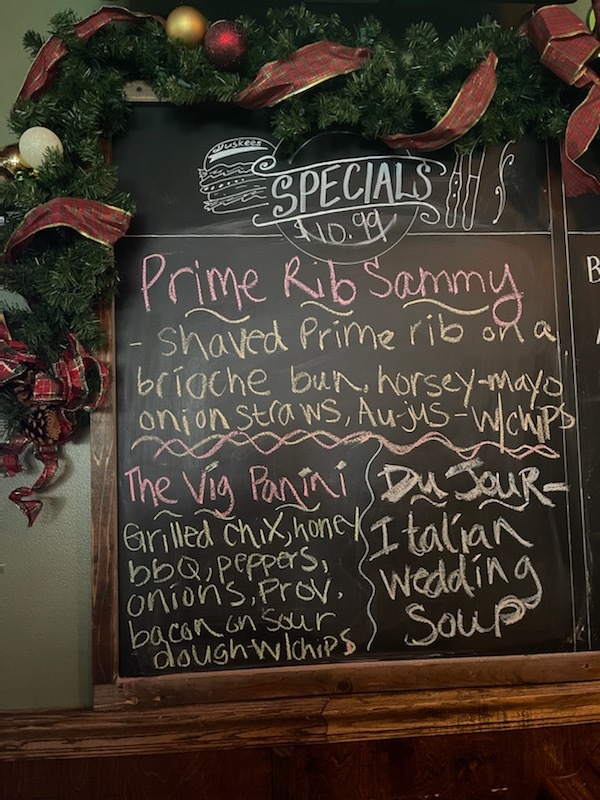 Huskees
SPECIALS
$10.99
Prime Rib Sammy
- shaved Prime rib on a
brioche bun, horsey-mayo
onion straws, Au-jus - w/chips
The Vig Panini
Grilled chix, honey
bbQ, peppers,
onions, Prov,
bacon on sour
dough-w/chips
Du JOUR-
Italian
wedding
Soup
B